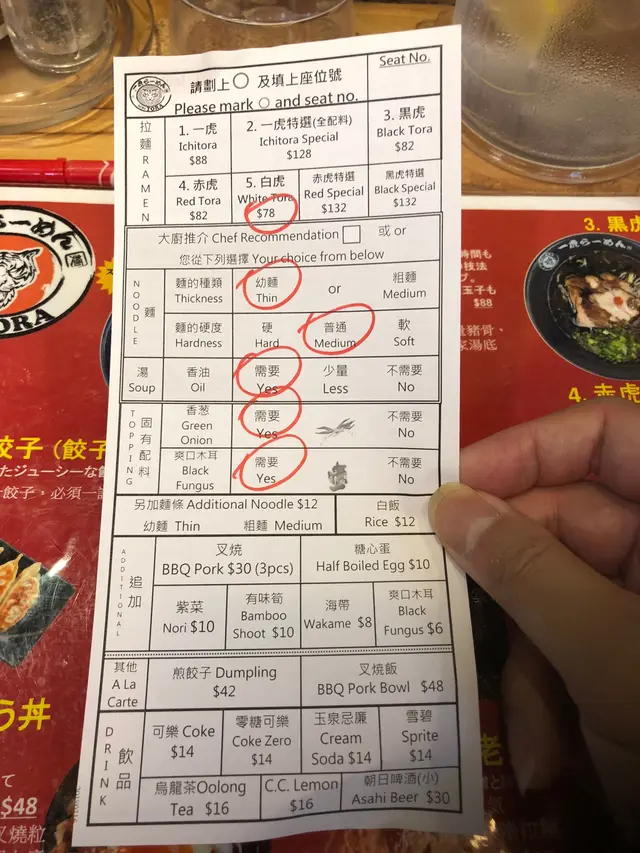 請劃上○ 及填上座位號
Please mark ○ and seat no.
Seat No.
拉麵 RAMEN
1. 一虎
Ichitora
$88
2. 一虎特選(全配料)
Ichitora Special
$128
3. 黒虎
Black Tora
$82
4. 赤虎
Red Tora
$82
5. 白虎
White Tora
$78
赤虎特選
Red Special
$132
黒虎特選
Black Special
$132
大廚推介 Chef Recommendation □ 或 or
您從下列選擇 Your choice from below
NOODLE 麵
麵的種類
Thickness
幼麵
Thin
or
粗麵
Medium
麵的硬度
Hardness
硬
Hard
普通
Medium
軟
Soft
湯
Soup
香油
Oil
需要
Yes
少量
Less
不需要
No
TOPPING 固有配料
香葱
Green
Onion
需要
Yes
不需要
No
爽口木耳
Black
Fungus
需要
Yes
不需要
No
另加麵條 Additional Noodle $12
幼麵 Thin 粗麵 Medium
白飯
Rice $12
ADDITIONAL 追加
叉燒
BBQ Pork $30 (3pcs)
糖心蛋
Half Boiled Egg $10
紫菜
Nori $10
有味筍
Bamboo
Shoot $10
海帶
Wakame $8
爽口木耳
Black
Fungus $6
其他
A La
Carte
煎餃子 Dumpling
$42
叉燒飯
BBQ Pork Bowl $48
DRINK 飲品
可樂 Coke
$14
零糖可樂
Coke Zero
$14
玉泉忌廉
Cream
Soda $14
雪碧
Sprite
$14
烏龍茶Oolong
Tea $16
C.C. Lemon
$16
朝日啤酒(小)
Asahi Beer $30
らーめん
TORA
餃子 (餃子
たジューシーな
う丼
て
$48
叉燒粒
3. 黒虎
時間も
技法
玉子も
$88
4. 赤虎